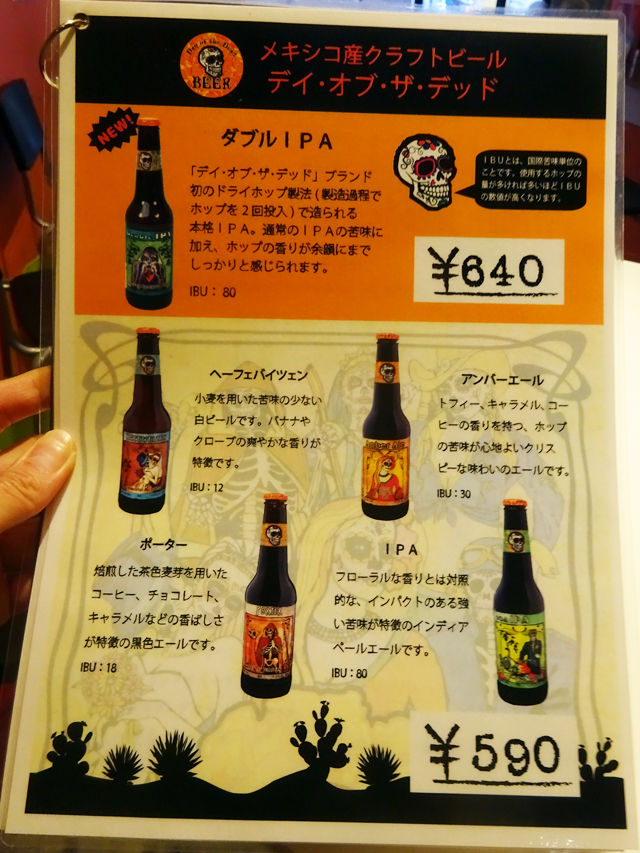 Day of the Dead
BEER
メキシコ産クラフトビール
デイ・オブ・ザ・デッド
NEW!
ダブルIPA
「デイ・オブ・ザ・デッド」ブランド
初のドライホップ製法(製造過程で
ホップを2回投入)で造られる
本格IPA。通常のIPAの苦味に
加え、ホップの香りが余韻にまで
しっかりと感じられます。
IBU：80
IBUとは、国際苦味単位の
ことです。使用するホップの
量が多ければ多いほどIBU
の数値が高くなります。
¥640
ヘーフェバイツェン
小麦を用いた苦味の少ない
白ビールです。バナナや
クローブの爽やかな香りが
特徴です。
IBU：12
アンバーエール
トフィー、キャラメル、コー
ヒーの香りを持つ、ホップ
の苦味が心地よいクリス
ピーな味わいのエールです。
IBU：30
Amber Ale
ポーター
焙煎した茶色麦芽を用いた
コーヒー、チョコレート、
キャラメルなどの香ばしさ
が特徴の黒色エールです。
IBU：18
PORTER
IPA
フローラルな香りとは対照
的な、インパクトのある強
い苦味が特徴のインディア
ペールエールです。
IBU：80
IPA
¥590